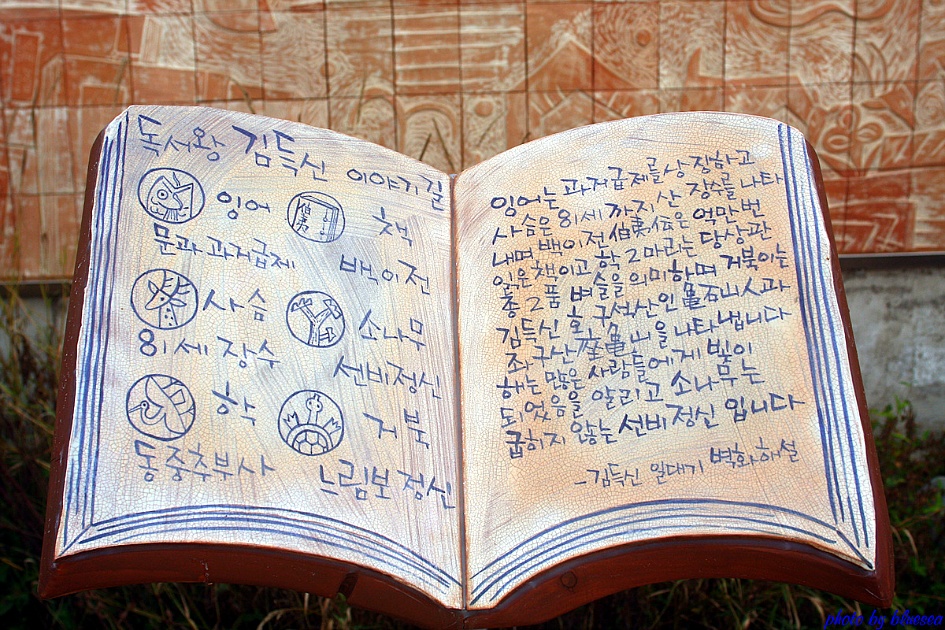 독서왕 김득신 이야기길
잉어 책
문과 과거급제 백이전
사슴 소나무
81세 장수 선비정신
학 거북
동중추부사 느림보 정신
잉어는 과거급제를 상징하고
사슴은 81세 까지 산 장수를 나타
내며 백이전 伯夷伝은 억만 번
읽은 책이고 학 2마리는 당상관
종2품 벼슬을 의미하며 거북이는
김득신 호 구석산인 龜石山人과
좌구산 座龜山을 나타냅니다
해는 많은 사람들에게 빛이
되었음을 알리고 소나무는
굽히지 않는 선비정신 입니다
-김득신 일대기 벽화해설
photo by bluesea